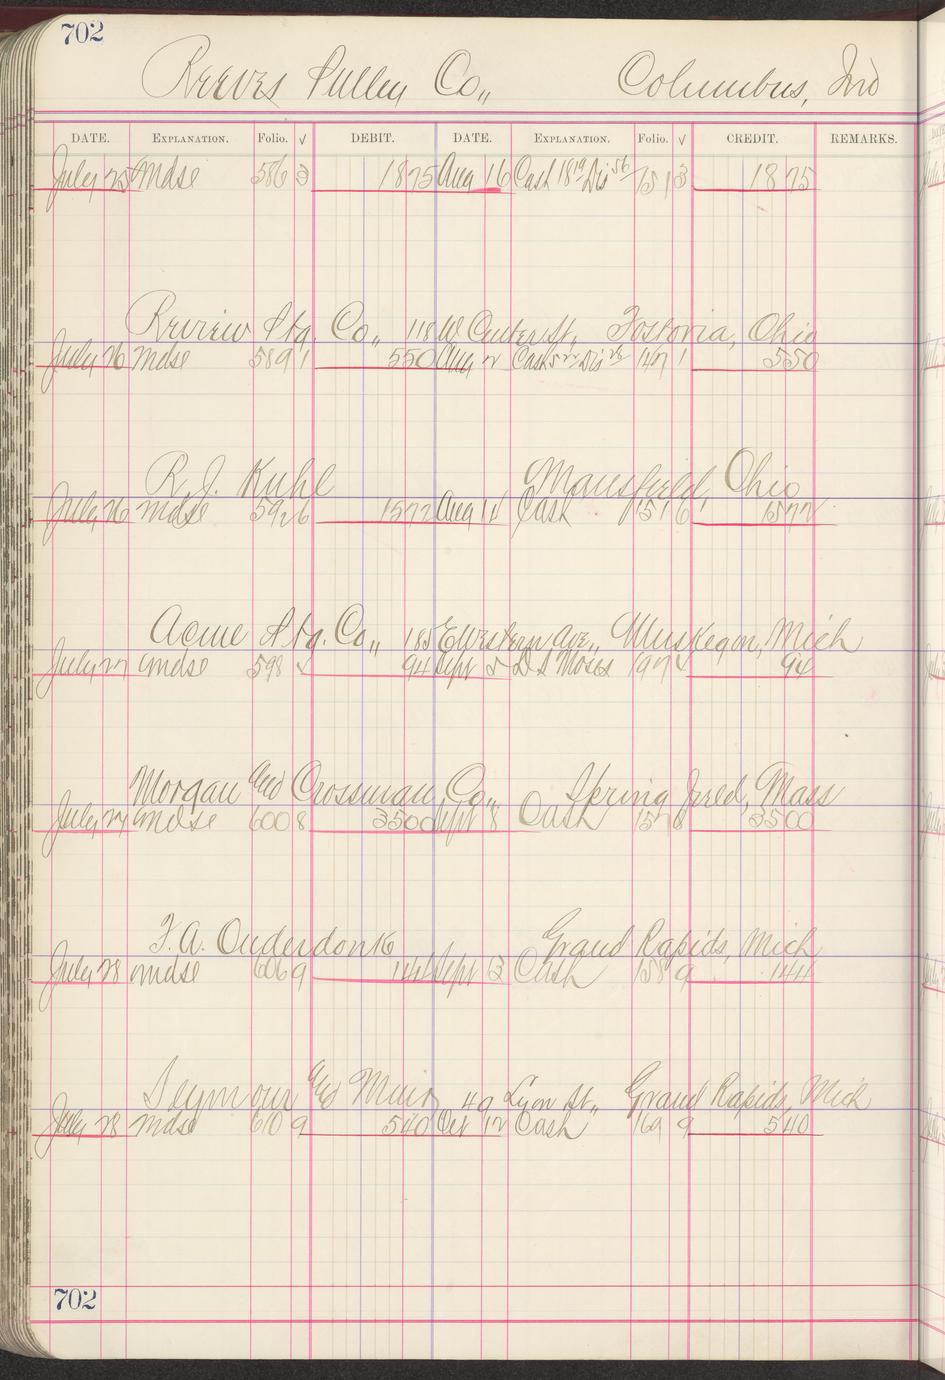 702
Reeves Pulley Co,, Columbus, Ind
DATE. EXPLANATION. Folio. √ DEBIT. DATE. EXPLANATION. Folio. √ CREDIT. REMARKS.
July 25 Mdse 586 3 1875 Aug 16 Cash 18 19 Dis 56 151 3 1875
Review Ptg. Co,, 118 W Center St,, Fostoria, Ohio
July 26 Mdse 589 1 550 Aug 2 Cash 5 22 Dis 28 147 1 550
R. J. Kuhl Mansfield, Ohio
July 26 Mdse 592 6 1572 Aug 14 Cash 151 6 1572
Acme Ptg. Co,, 185 E Western Ave,, Muskegon, Mich
July 27 Mdse 598 √ 94 Sept 5 D S Moses 197 √ 94
Morgan and Crossman Co,, Springfield, Mass
July 27 Mdse 600 8 3500 Sept 8 Cash 157 8 3500
F. A. Onderdonk Grand Rapids, Mich
July 28 Mdse 606 9 144 Sept 13 Cash 158 9 144
Seymour and Muir 49 Lyon St,, Grand Rapids, Mich
July 28 Mdse 610 9 540 Oct 12 Cash 169 9 540
702